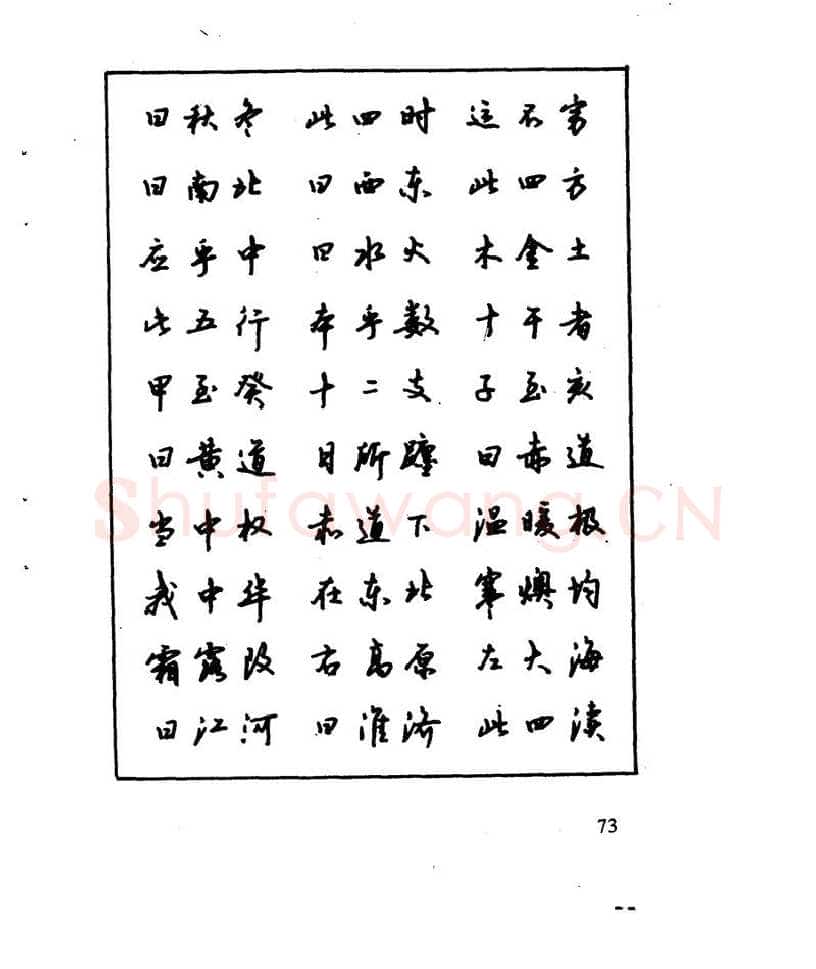 曰秋冬 此四时 运不穷
曰南北 曰西东 此四方
应乎中 曰水火 木金土
此五行 本乎数 十干者
甲至癸 十二支 子至亥
曰黄道 日所躔 曰赤道
当中权 赤道下 温暖极
我中华 在东北 寒燠均
霜露改 右高原 左大海
曰江河 曰淮济 此四渎
Shufawang.CN
73
--